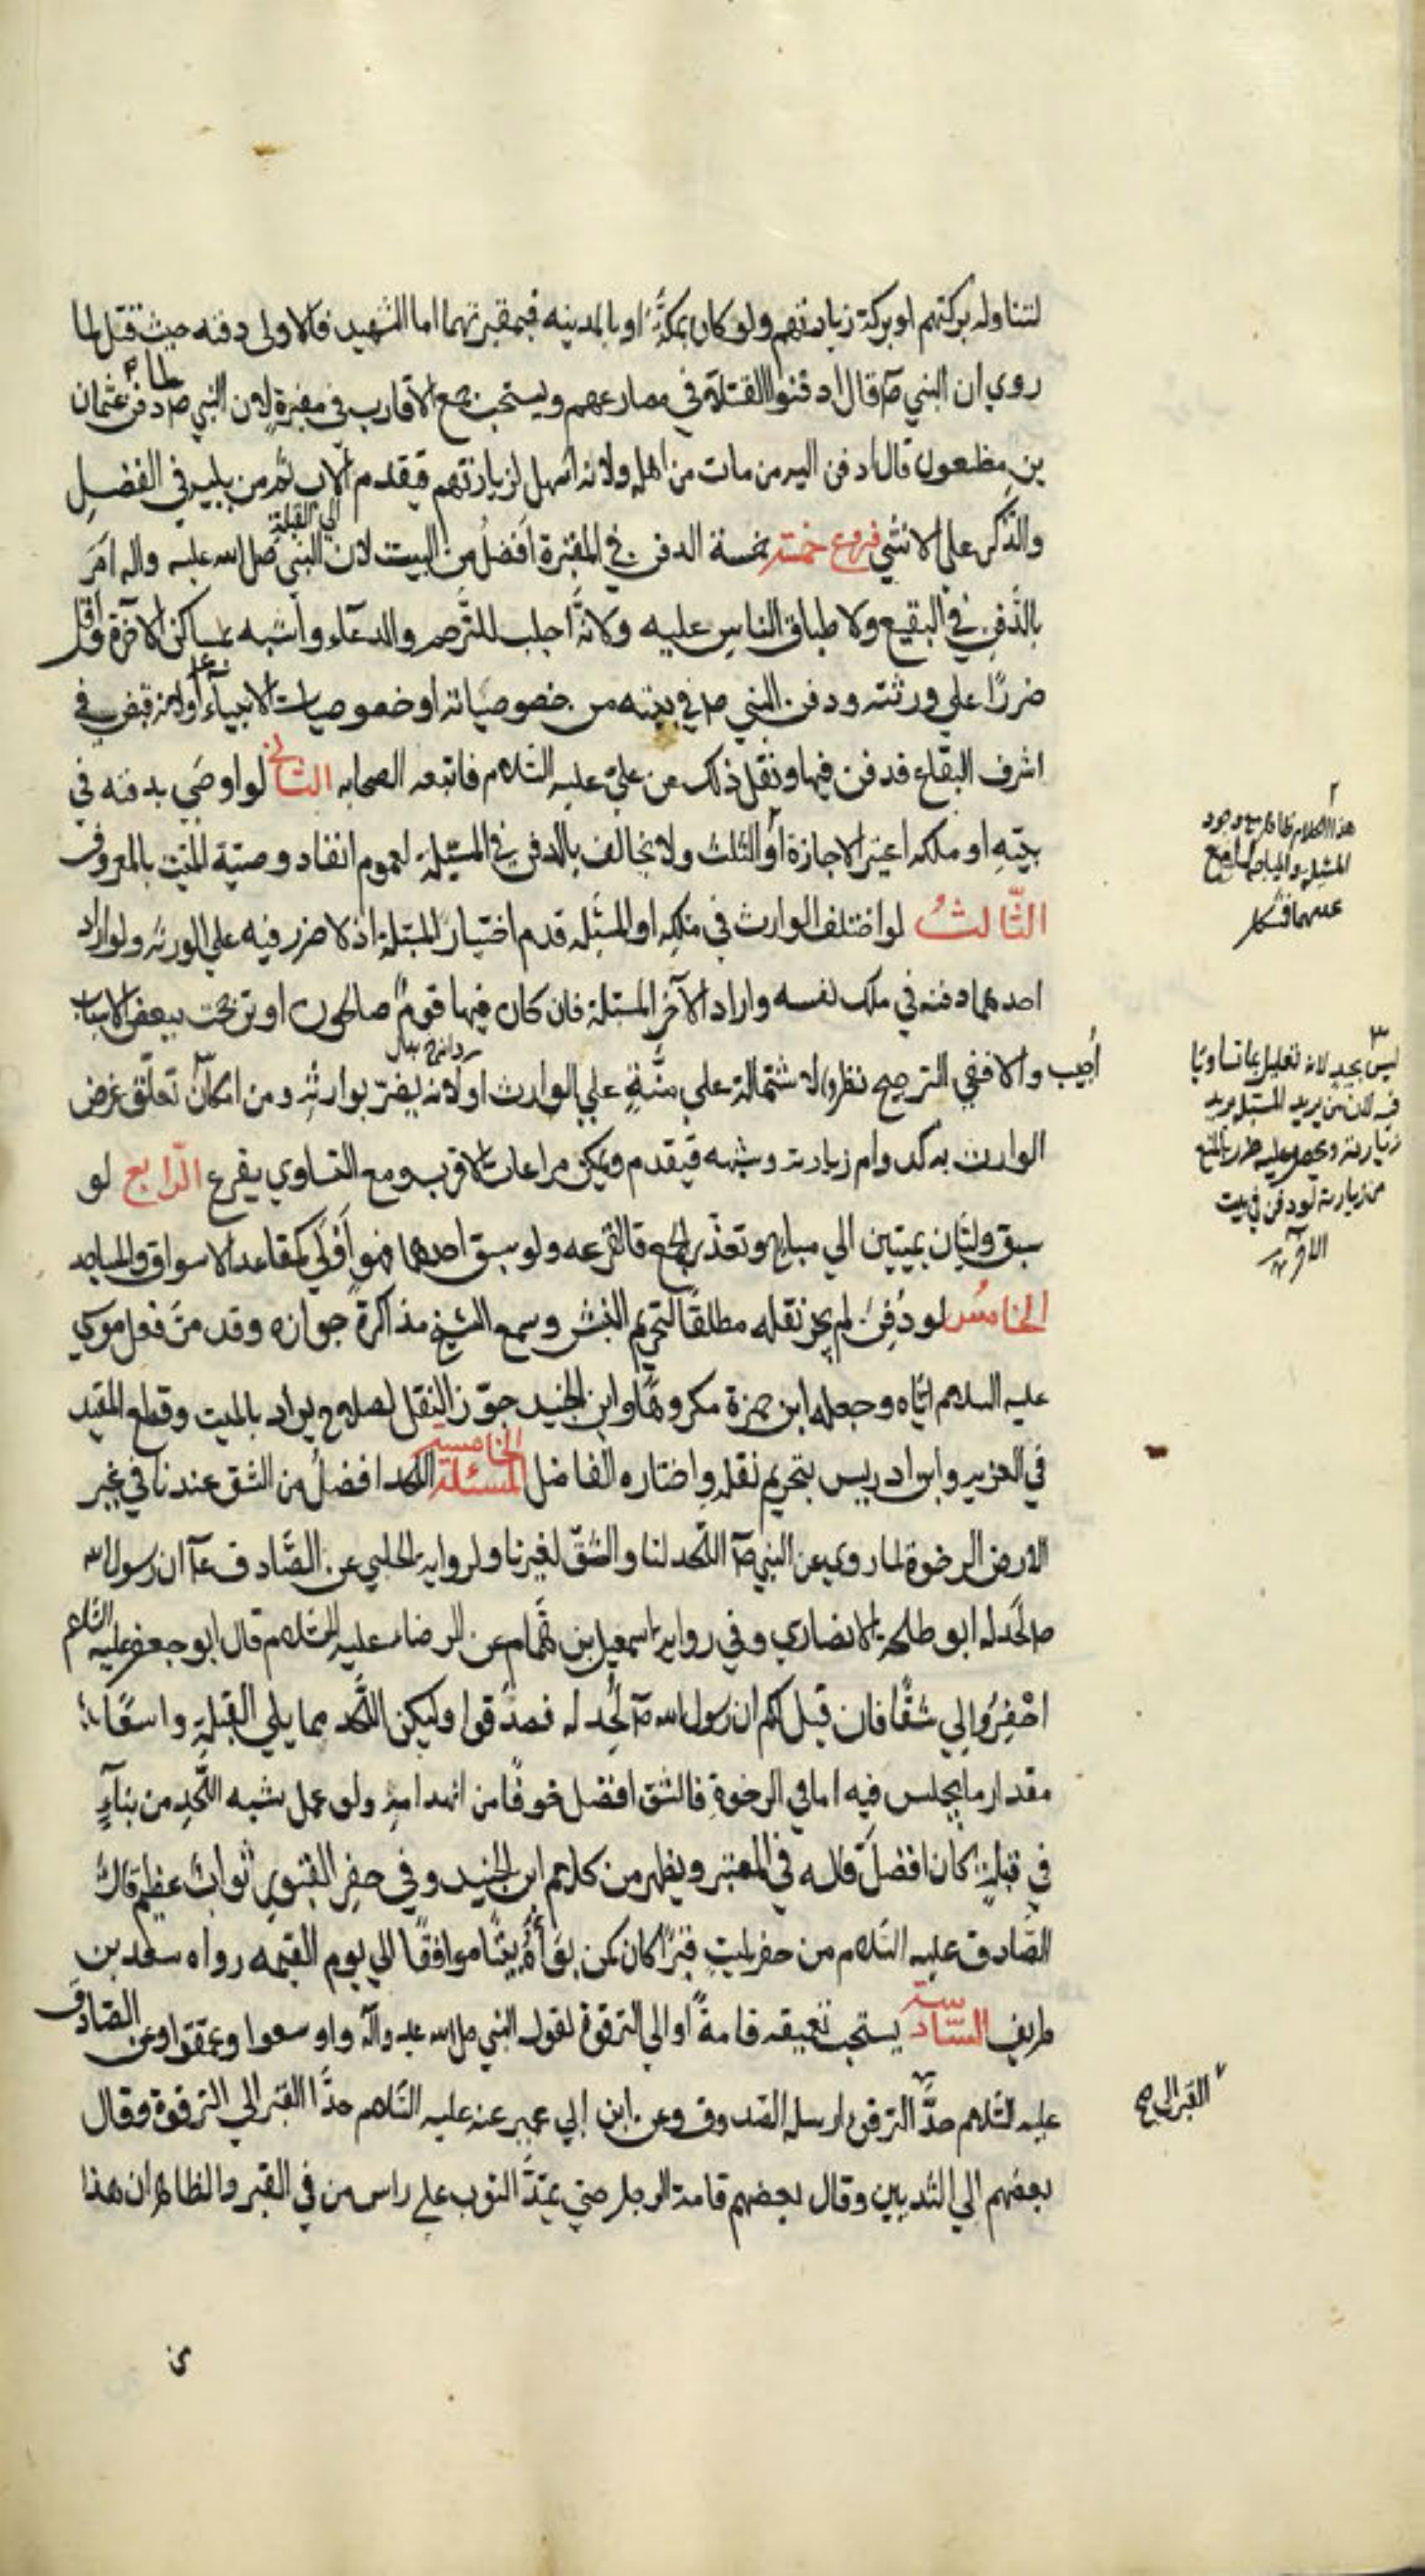 لتناوله بركتهم او بركة زيارتهم ولو كان بمكة او بالمدينه فبمقبرتهما اما الشهيد فالاولى دفنه حيث قتل لما
روي ان النبي ص قال ادفنوا القتلى في مصارعهم ويستحب جمع الاقارب في مقبرة لان النبي ص لما دفن عثمان
بن مظعون قال ادفن اليه من مات من اهله ولانه اسهل لزيارتهم فيقدم الاب ثم من يليه في الفضل
الى القبلة
والذكر على الانثى فروع خمسة خمسة الدفن في المقبرة افضل من البيت لان النبي صلى الله عليه واله امر
بالدفن في البقيع ولاطباق الناس عليه ولانه اجلب للترحم والدعاء واشبه بمساكن الاخرة واقل
ضررا على ورثته ودفن النبي ص في بيته من خصوصياته او خصوصيات الانبياء او لانه قبض في
اشرف البقاع فدفن فيها ونقل ذلك من علي عليه السلام فاتبعه الصحابه الثاني لو اوصى بدفنه في
بيته او ملكه اعتبر الاجازة او الثلث ولا يخالف بالدفن في المسبلة لعموم انفاذ وصية الميت بالمعروف
الثالث لو اختلف الوارث في ملكه او المسبلة قدم اختيار المسبلة اذ لا ضرر فيه على الورثه ولو اراد
احدهما دفنه في ملك نفسه واراد الآخر المسبلة فان كان فيها قوم صالحون او ترجحت ببعض الاسباب
اجيب والا ففي الترجيح نظر لاشتماله على منة على الوارث او لانه يضر بوارثه ومن امكان تعلق غرض
الوارث به كدوام زيارته وشبهه فيقدم ويمكن مراعات الاقرب ومع التساوي يقرع الرابع لو
سبق وليان بميتين الى مباح وتعذر الجمع فالقرعه ولو سبق احدهما فهو اولى كمقاعد الاسواق والمباحه
الخامس لو دفن لم يجز نقله مطلقا لتحريم النبش وسمع الشيخ مذاكرة جوازه وقد مر فعل موسى
عليه السلام اياه وجعله ابن حمزة مكروها وابن الجنيد جوز النقل لصلاح يراد بالميت وقطع المفيد
في العزية وابن ادريس بتحريم نقله واختاره الفاضل المسئلة الخامسة اللحد افضل من الشق عندنا في غير
الارض الرخوة لما روي عن النبي ص اللحد لنا والشق لغيرنا ولروايه الحلبي عن الصادق ع ان رسول الله
ص لحد له ابو طلحه الانصاري وفي رواية اسمعيل بن همام عن الرضا عليه السلام قال ابو جعفر عليه السلام
احفروا لي شقا فان قيل لكم ان رسول الله ص لحد له فصدقوا وليكن اللحد مما يلي القبلة واسعا
مقدار ما يجلس فيه اما في الرخوة فالشق افضل خوفا من انهدامه ولو عمل شبه اللحد من بناء
في قبلته كان افضل قاله في المعتبر ويظهر من كلام ابن الجنيد وفي حفر القبور ثواب عظيم قال
الصادق عليه السلام من حفر لميت قبرا كان كمن بوأه بيتا موافقا الى يوم القيمه رواه سعد بن
طريف السادسة يستحب تعميقه قامة او الى الترقوة لقول النبي صلى الله عليه وآله واوسعوا وعمقوا وعن الصادق
عليه السلام حد الترقوة ارسله الصدوق وعن ابن ابي عمير عنه عليه السلام حد القبر الى الترقوة وقال
بعضهم الى الثديين وقال بعضهم قامة الرجل حتى يمتد الثوب على راس من في القبر والظاهر ان هذا
هذا الكلام ظاهر مع وجود
المسبلة والمباحة اما مع
عدمهما فشكل
ليس بجيد لانه تعليل بما تساويا
فيه لان من يريد المسبله يريد
زيارته ويحصل عليه ضرر بالمنع
من زيارته لو دفن في بيت
الاخر
القبر الى صح